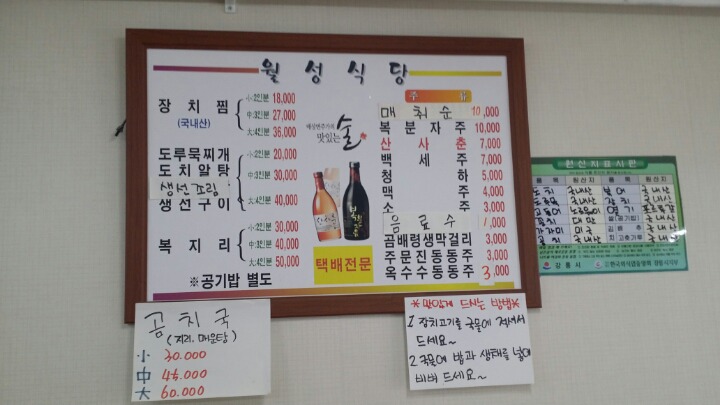 월성식당
장치찜
(국내산)
小2인분 18,000
中3인분 27,000
大4인분 36,000
도루묵찌개
도치알탕
생선조림
생선구이
小2인분 20,000
中3인분 30,000
大4인분 40,000
복지리
小2인분 30,000
中3인분 40,000
大4인분 50,000
※공기밥 별도
맛있는 술
택배전문
주 류
매취순 10,000
복분자주 10,000
산사춘 7,000
백세주 7,000
청하 5,000
맥주 4,000
소주 3,000
음료수 1,000
곰배령생막걸리 3,000
주문진동동주 3,000
옥수수동동주 3,000
곰치국
(지리. 매운탕)
小 30.000
中 45.000
大 60.000
※맛있게 드시는 방법※
1 장치고기를 국물에 적셔서
드세요~
2.국물에 밥과 생채를 넣어
비벼 드세요~
원산지표시판
품목 원산지 품목 원산지
도치 국내산 북어
국내산
강릉시